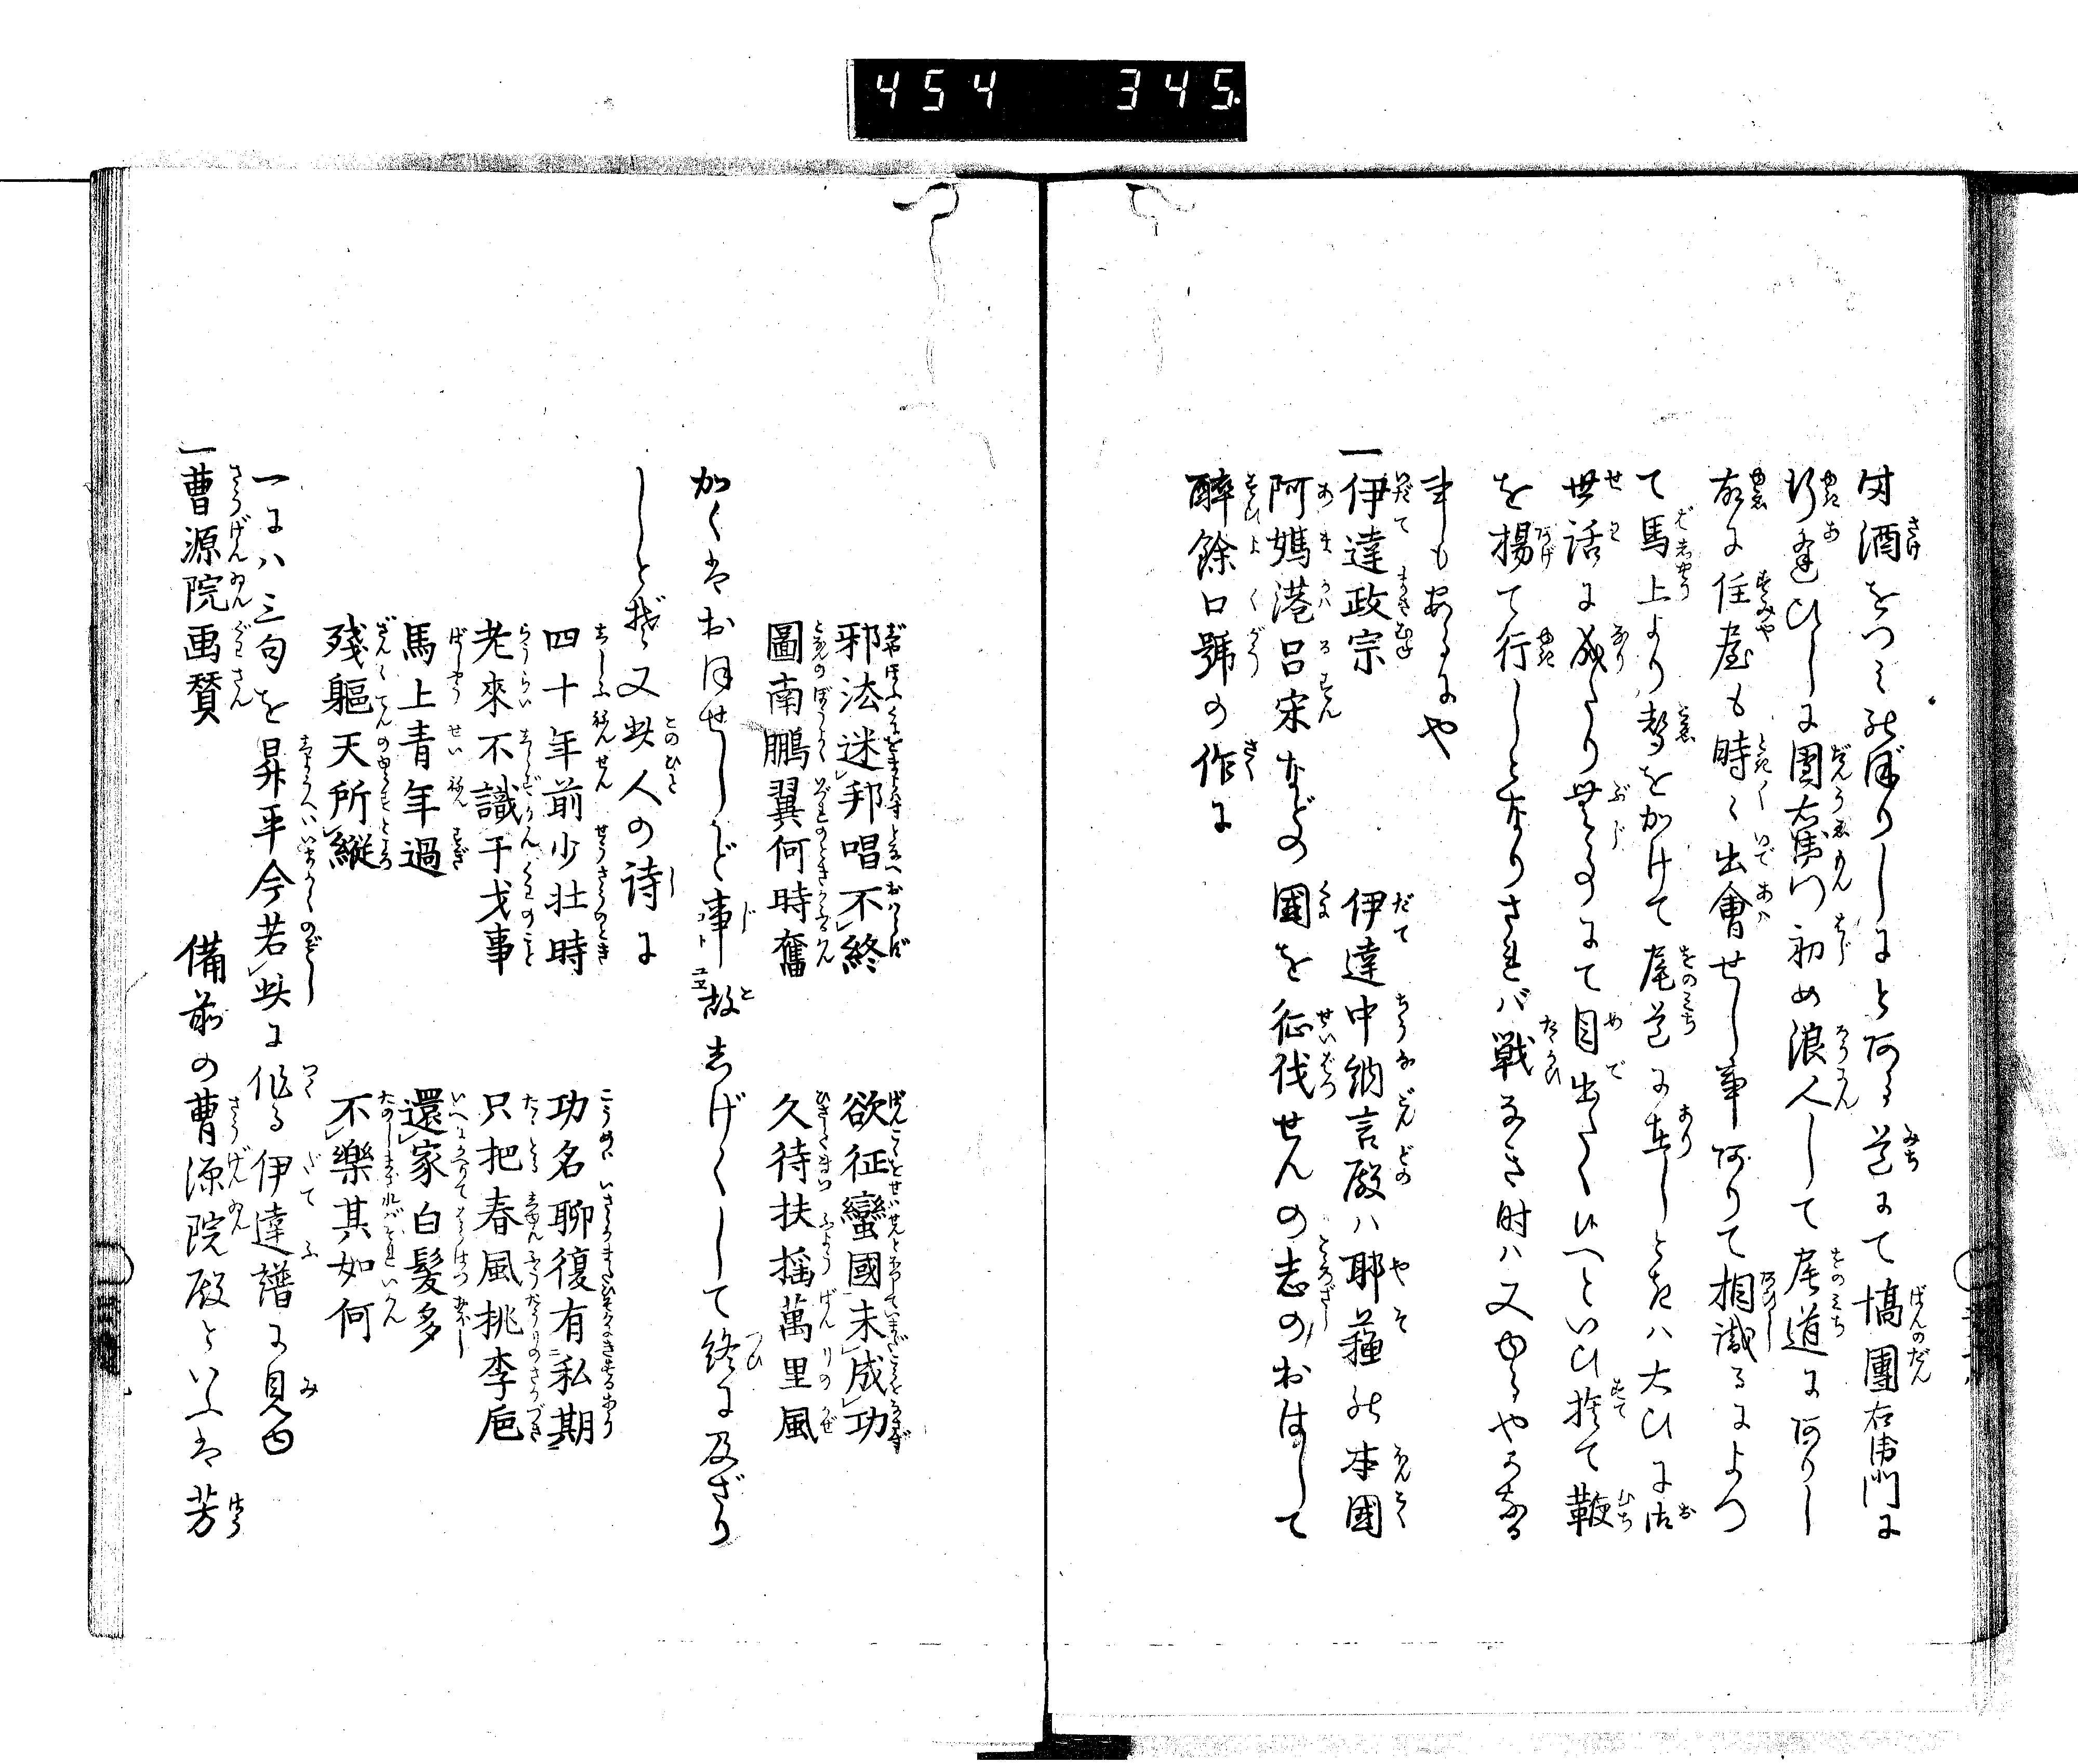 454 345
付酒をつミのぼりしにとある道にて塙團右衛門に
行逢ひしに團右衛門初め浪人して尾道にありし
故に住屋も時々出會せし事ありて相識るによつ
て馬上より声をかけて尾道に在しときハ大ひに御
世話に成たり無事にて目出たく候へといひ捨て鞭
を揚て行しとなりされバ戦なき时ハ又ゆるやかなる
事もあるにや
一伊達政宗 伊達中納言殿ハ耶蘓の本國
阿媽港呂宋などの國を征伐せんの志のおはして
醉餘口號の作に
邪法迷邦唱不終 欲征蠻國未成功
圖南鵬翼何時奮 久待扶搖萬里風
かくはおほせしかど事故しげくして終に及ざり
しとぞ又此人の诗に
四十年前少壮時 功名聊復有私期
老來不識干戈事 只把春風桃李巵
馬上青年過 還家白髪多
殘軀天所縦 不樂其如何
一にハ三句を昇平今若此に作る伊達譜に見ゆ
一曹源院画賛 備前の曹源院殿といふは芳